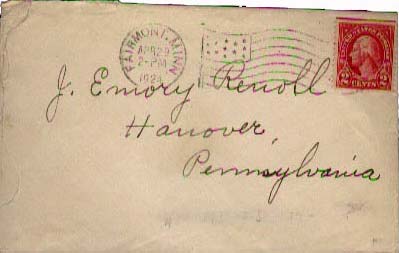 FAIRMONT, MINN
APR 29
2-PM
1924
2 CENTS 2
J. Emory Renoll
Hanover,
Pennsylvania